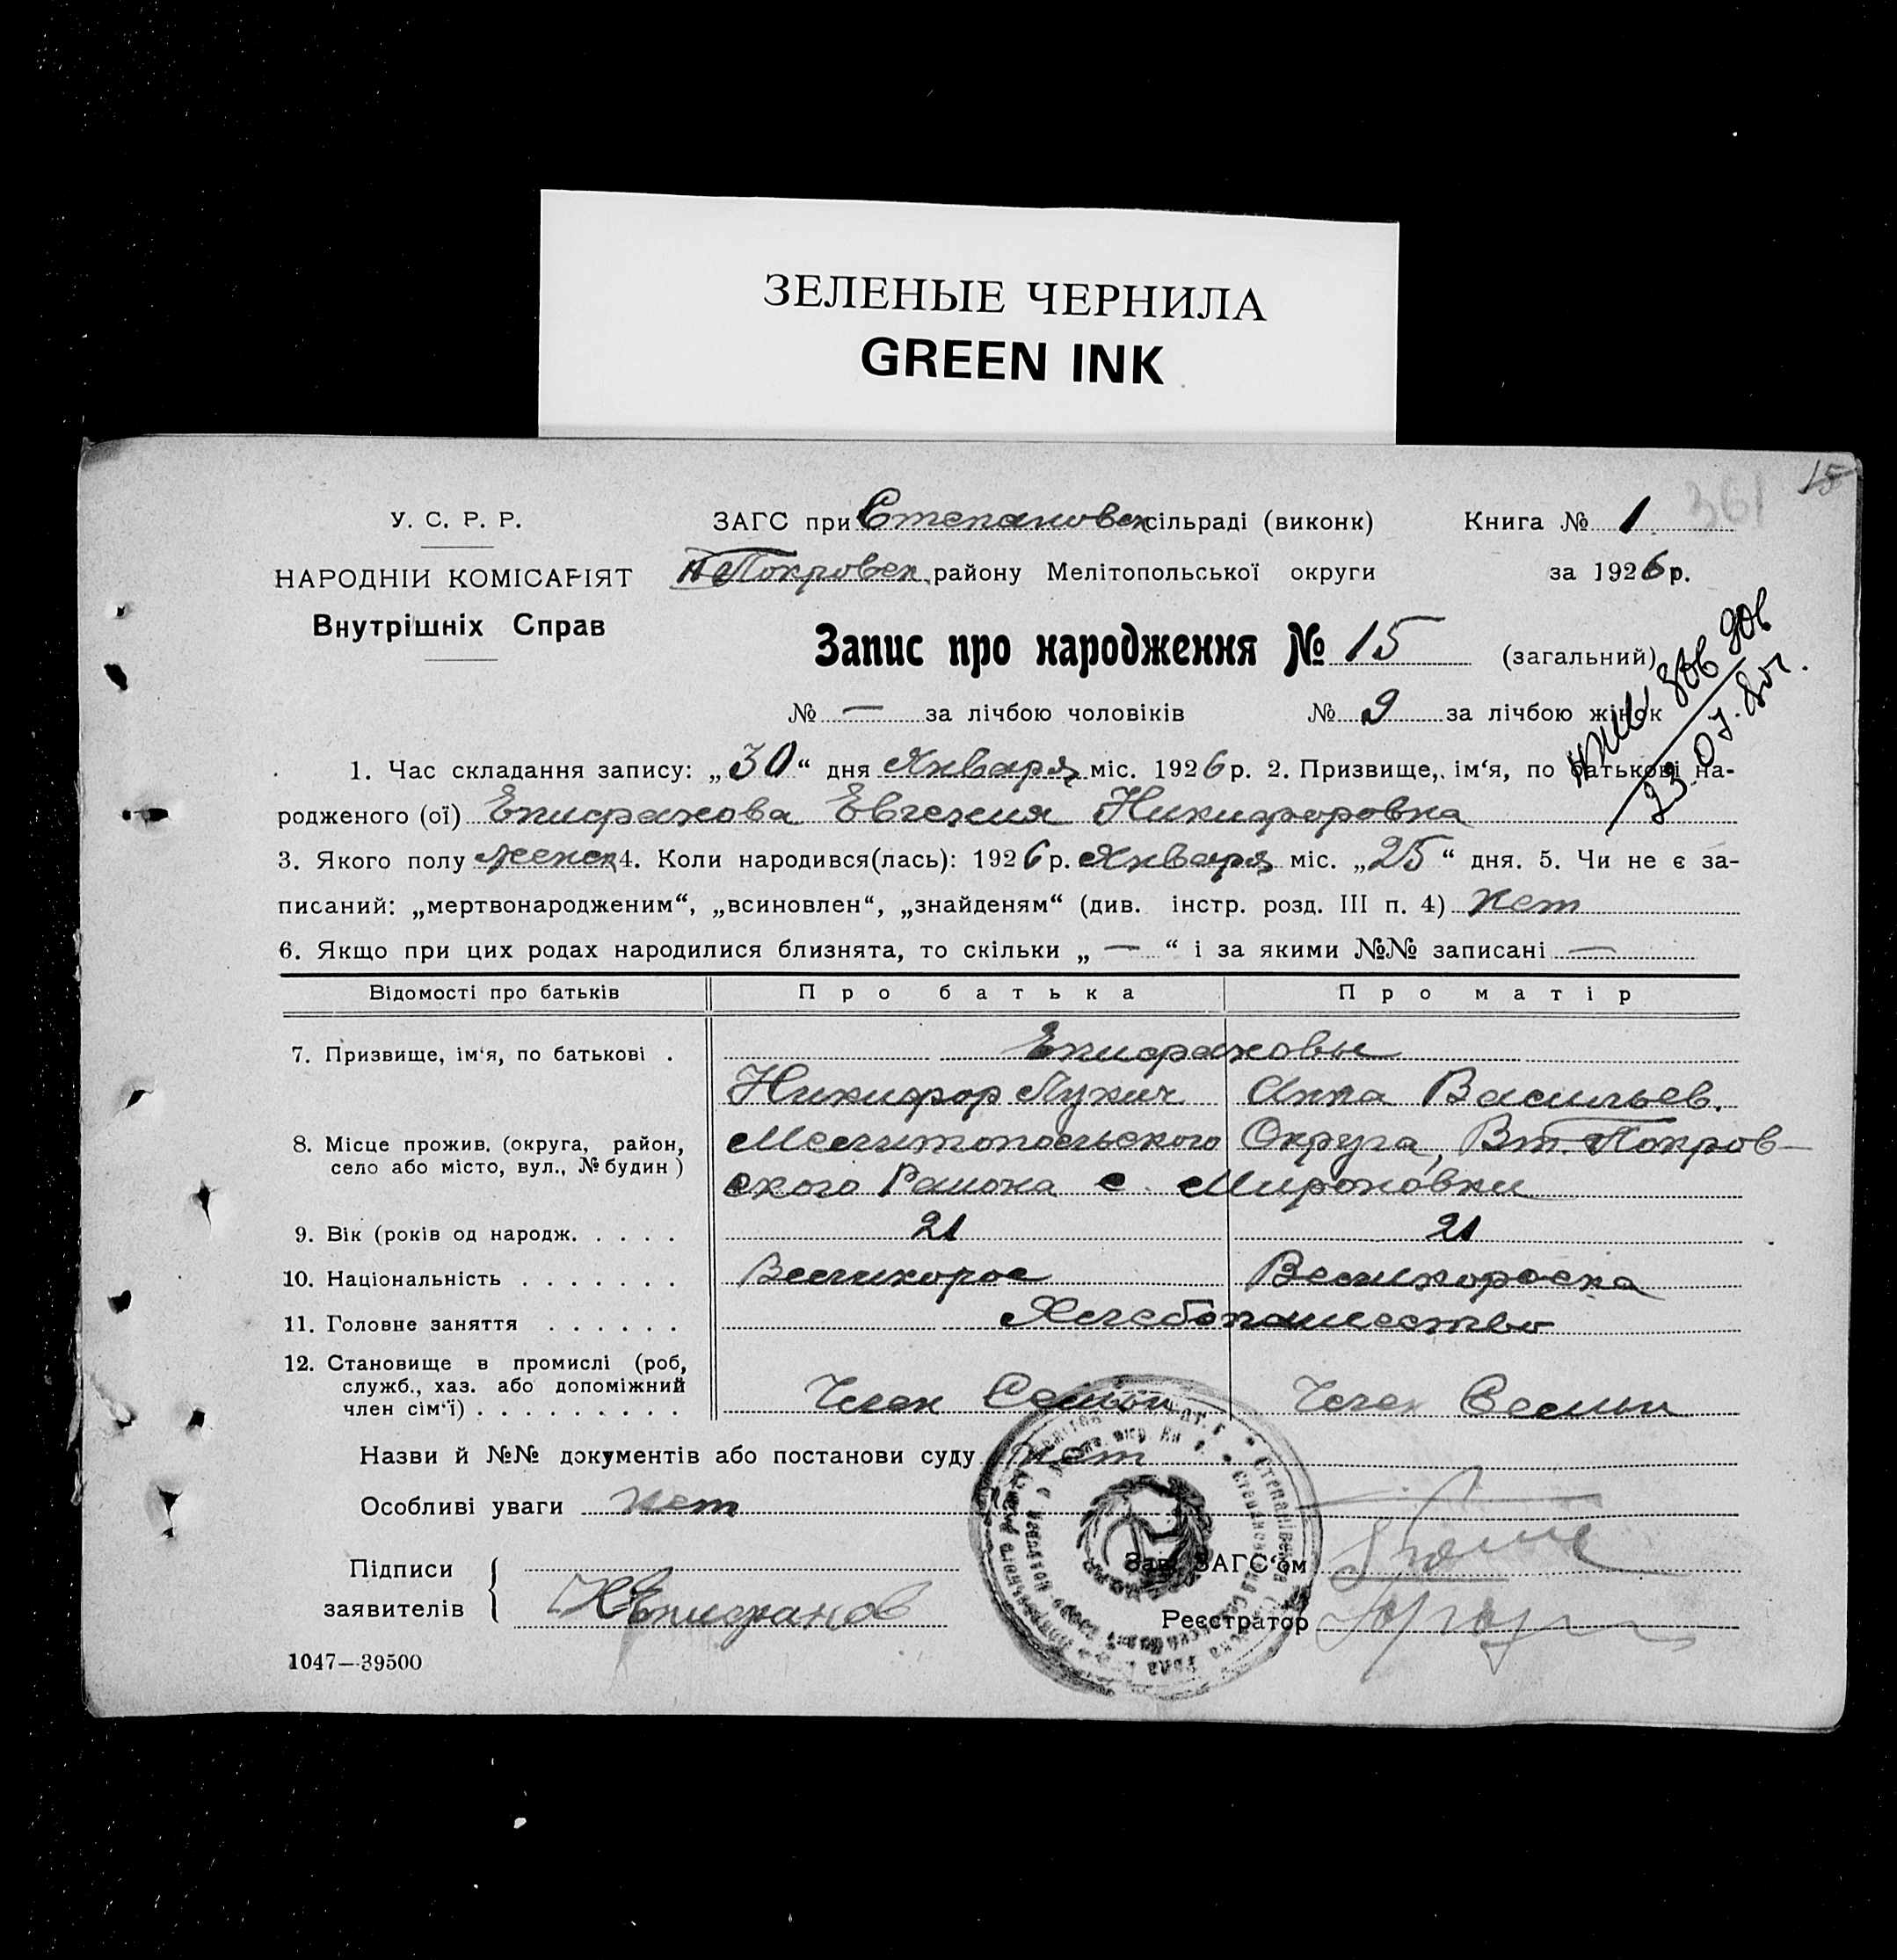 ЗЕЛЕНЫЕ ЧЕРНИЛА
GREEN INK
15
361
У. С. Р. Р.
ЗАГС при Степановск сільраді (виконк)
Книга № 1
НАРОДНІЙ КОМІСАРІЯТ
Покровск. району Мелітопольської округи
за 1926 р.
Внутрішніх Справ
Запис про народження № 15 (загальний)
№ — за лічбою чоловіків № 9 за лічбою жінок
23.07.
1. Час складання запису: „30“ дня Января міс. 1926 р. 2. Призвище, ім‘я, по батькові на-
родженого (ої) Епифанова Евгения Никифоровна
3. Якого полу женск 4. Коли народився(лась): 1926 р. Января міс. „25“ дня. 5. Чи не є за-
писаний: „мертвонародженим“, „всиновлен“, „знайденям“ (див. інстр. розд. III п. 4) нет
6. Якщо при цих родах народилися близнята, то скільки „ — “ і за якими №№ записані —
Відомості про батьків Про батька Про матір
7. Призвище, ім‘я, по батькові . Епифановы
Никифор Лукич Анна Васильев.
8. Місце прожив. (округа, район, Мелитопольского Округа, Вт. Покров-
село або місто, вул., № будин) ского Района с. Мироновки
9. Вік (років од народж. . . . . 21 21
10. Національність . . . . . . . Великорос Великороска
11. Головне заняття . . . . . . Хлебопашество
12. Становище в промислі (роб,
служб., хаз. або допоміжний
член сім‘ї) . . . . . . . . . Член Семьи Член Семьи
Назви й №№ документів або постанови суду нет
Особливі уваги нет
Підписи
Зав. ЗАГС‘ом
заявителів Епифанов
Реєстратор
1047—39500